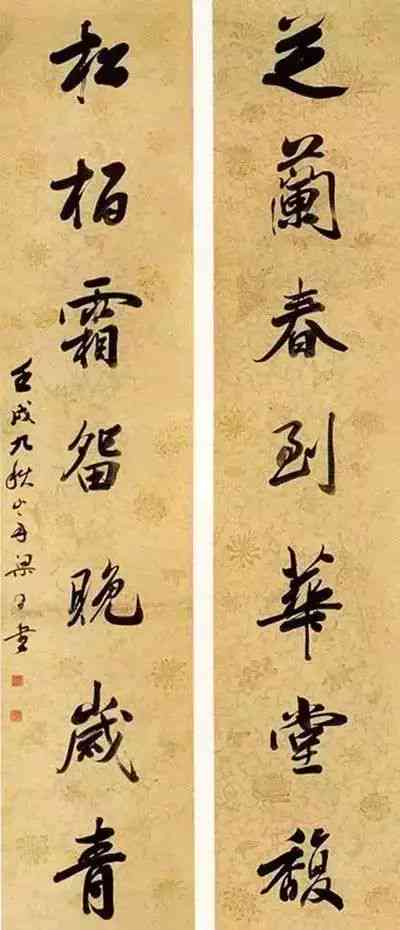 芝蘭春到華堂馥
松栢霜留晚歲青
壬戌九秋山舟梁同書